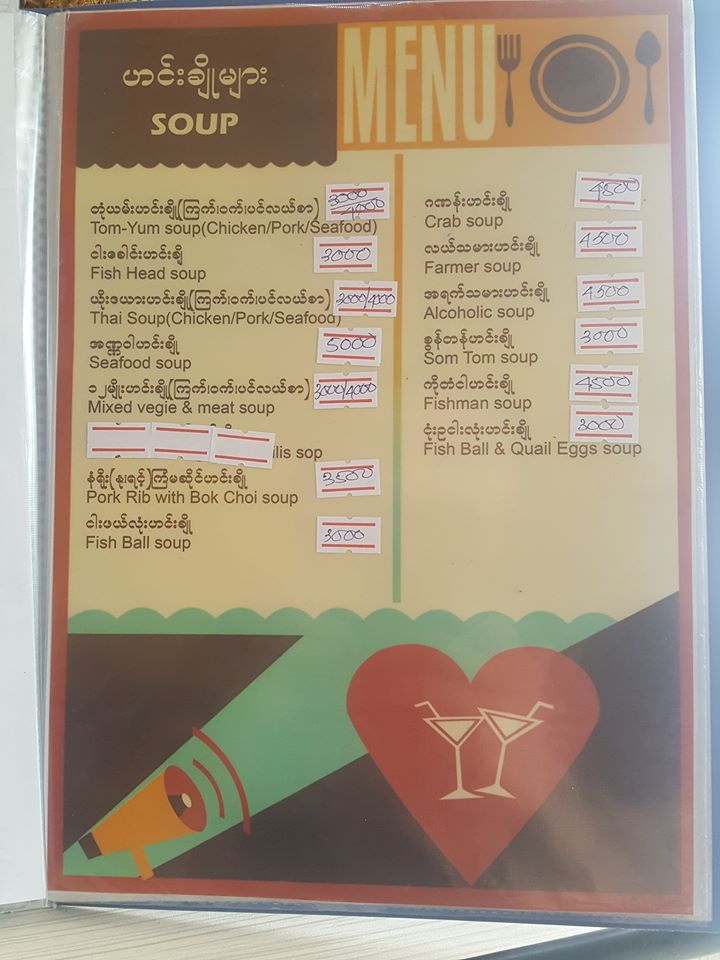 ဟင်းချိုများ
SOUP
MENU
တုံယမ်းဟင်းချို(ကြက်၊ဝက်၊ပင်လယ်စာ)
3000
4000
Tom-Yum soup(Chicken/Pork/Seafood)
ငါးခေါင်းဟင်းချို
3000
Fish Head soup
ယိုးဒယားဟင်းချို(ကြက်၊ဝက်၊ပင်လယ်စာ)
3000/4000
Thai Soup(Chicken/Pork/Seafood)
အဏ္ဏဝါဟင်းချို
5000
Seafood soup
၁၂မျိုးဟင်းချို(ကြက်၊ဝက်၊ပင်လယ်စာ)
3000/4000
Mixed vegie & meat soup
sop
နံရိုး(နု၊ရင့်)ကြံမဆိုင်ဟင်းချို
3500
Pork Rib with Bok Choi soup
ငါးဖယ်လုံးဟင်းချို
3000
Fish Ball soup
ဂဏန်းဟင်းချို
4500
Crab soup
လယ်သမားဟင်းချို
4500
Farmer soup
အရက်သမားဟင်းချို
4500
Alcoholic soup
စွန်တန်ဟင်းချို
3000
Som Tom soup
ကိုတံငါဟင်းချို
4500
Fishman soup
ငုံးဥငါးလုံးဟင်းချို
3000
Fish Ball & Quail Eggs soup